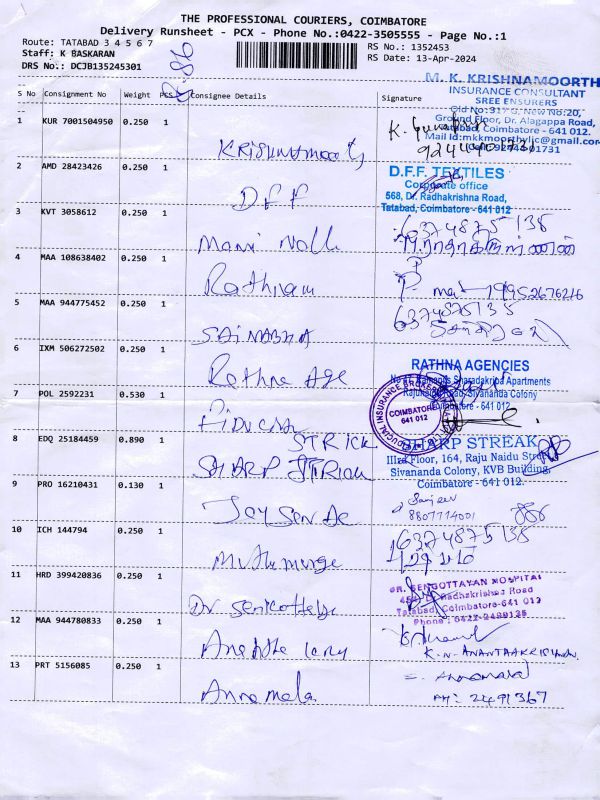 THE PROFESSIONAL COURIERS, COIMBATORE
Delivery Runsheet - PCX - Phone No.:0422-3505555 - Page No.:1
Route: TATABAD 3 4 5 6 7
Staff: K BASKARAN
DRS No.: DCJB135245301
RS No.: 1352453
RS Date: 13-Apr-2024
86
S No Consignment No Weight PCS Consignee Details Signature
M. K. KRISHNAMOORTH
INSURANCE CONSULTANT
SREE ENSURERS
Old No:317 G, New No:20,
Ground Floor, Dr. Alagappa Road,
Tatabad, Coimbatore - 641 012.
Mail Id:mkkmoorthylic@gmail.com
1 KUR 7001504950 0.250 1 Krishnamoorthy
2 AMD 28423426 0.250 1 DFF
D.F.F. TEXTILES
Corporate office
568, Dr. Radhakrishna Road,
Tatabad, Coimbatore - 641 012
3 KVT 3058612 0.250 1 Mani
6374875138
4 MAA 108638402 0.250 1 Rathinam
5 MAA 944775452 0.250 1 SAINABHA
6 IXM 506272502 0.250 1 Rathna Age
RATHNA AGENCIES
Sharadakriba Apartments
Sivananda Colony
Coimbatore - 641 012.
7 POL 2592231 0.530 1 Fiducial
FIDUCIAL INSURANCE BROKERS
COIMBATORE
641 012
8 EDQ 25184459 0.890 1 SHARP STRICK
SHARP STREAK
IIIrd Floor, 164, Raju Naidu Street
Sivananda Colony, KVB Building,
Coimbatore - 641 012.
9 PRO 16210431 0.130 1
Sanjeev
8807774001
10 ICH 144794 0.250 1 Muthumurge
6374875138
11 HRD 399420836 0.250 1 Dr
DR. SENGOTTAYAN HOSPITAL
Dr. Radhakrishna Road
Tatabad, Coimbatore-641 012
Phone : 0422-2499125
12 MAA 944780833 0.250 1
K. N. ANANTHAKRISHNAN
13 PRT 5156085 0.250 1 Annamela
PH: 2491367